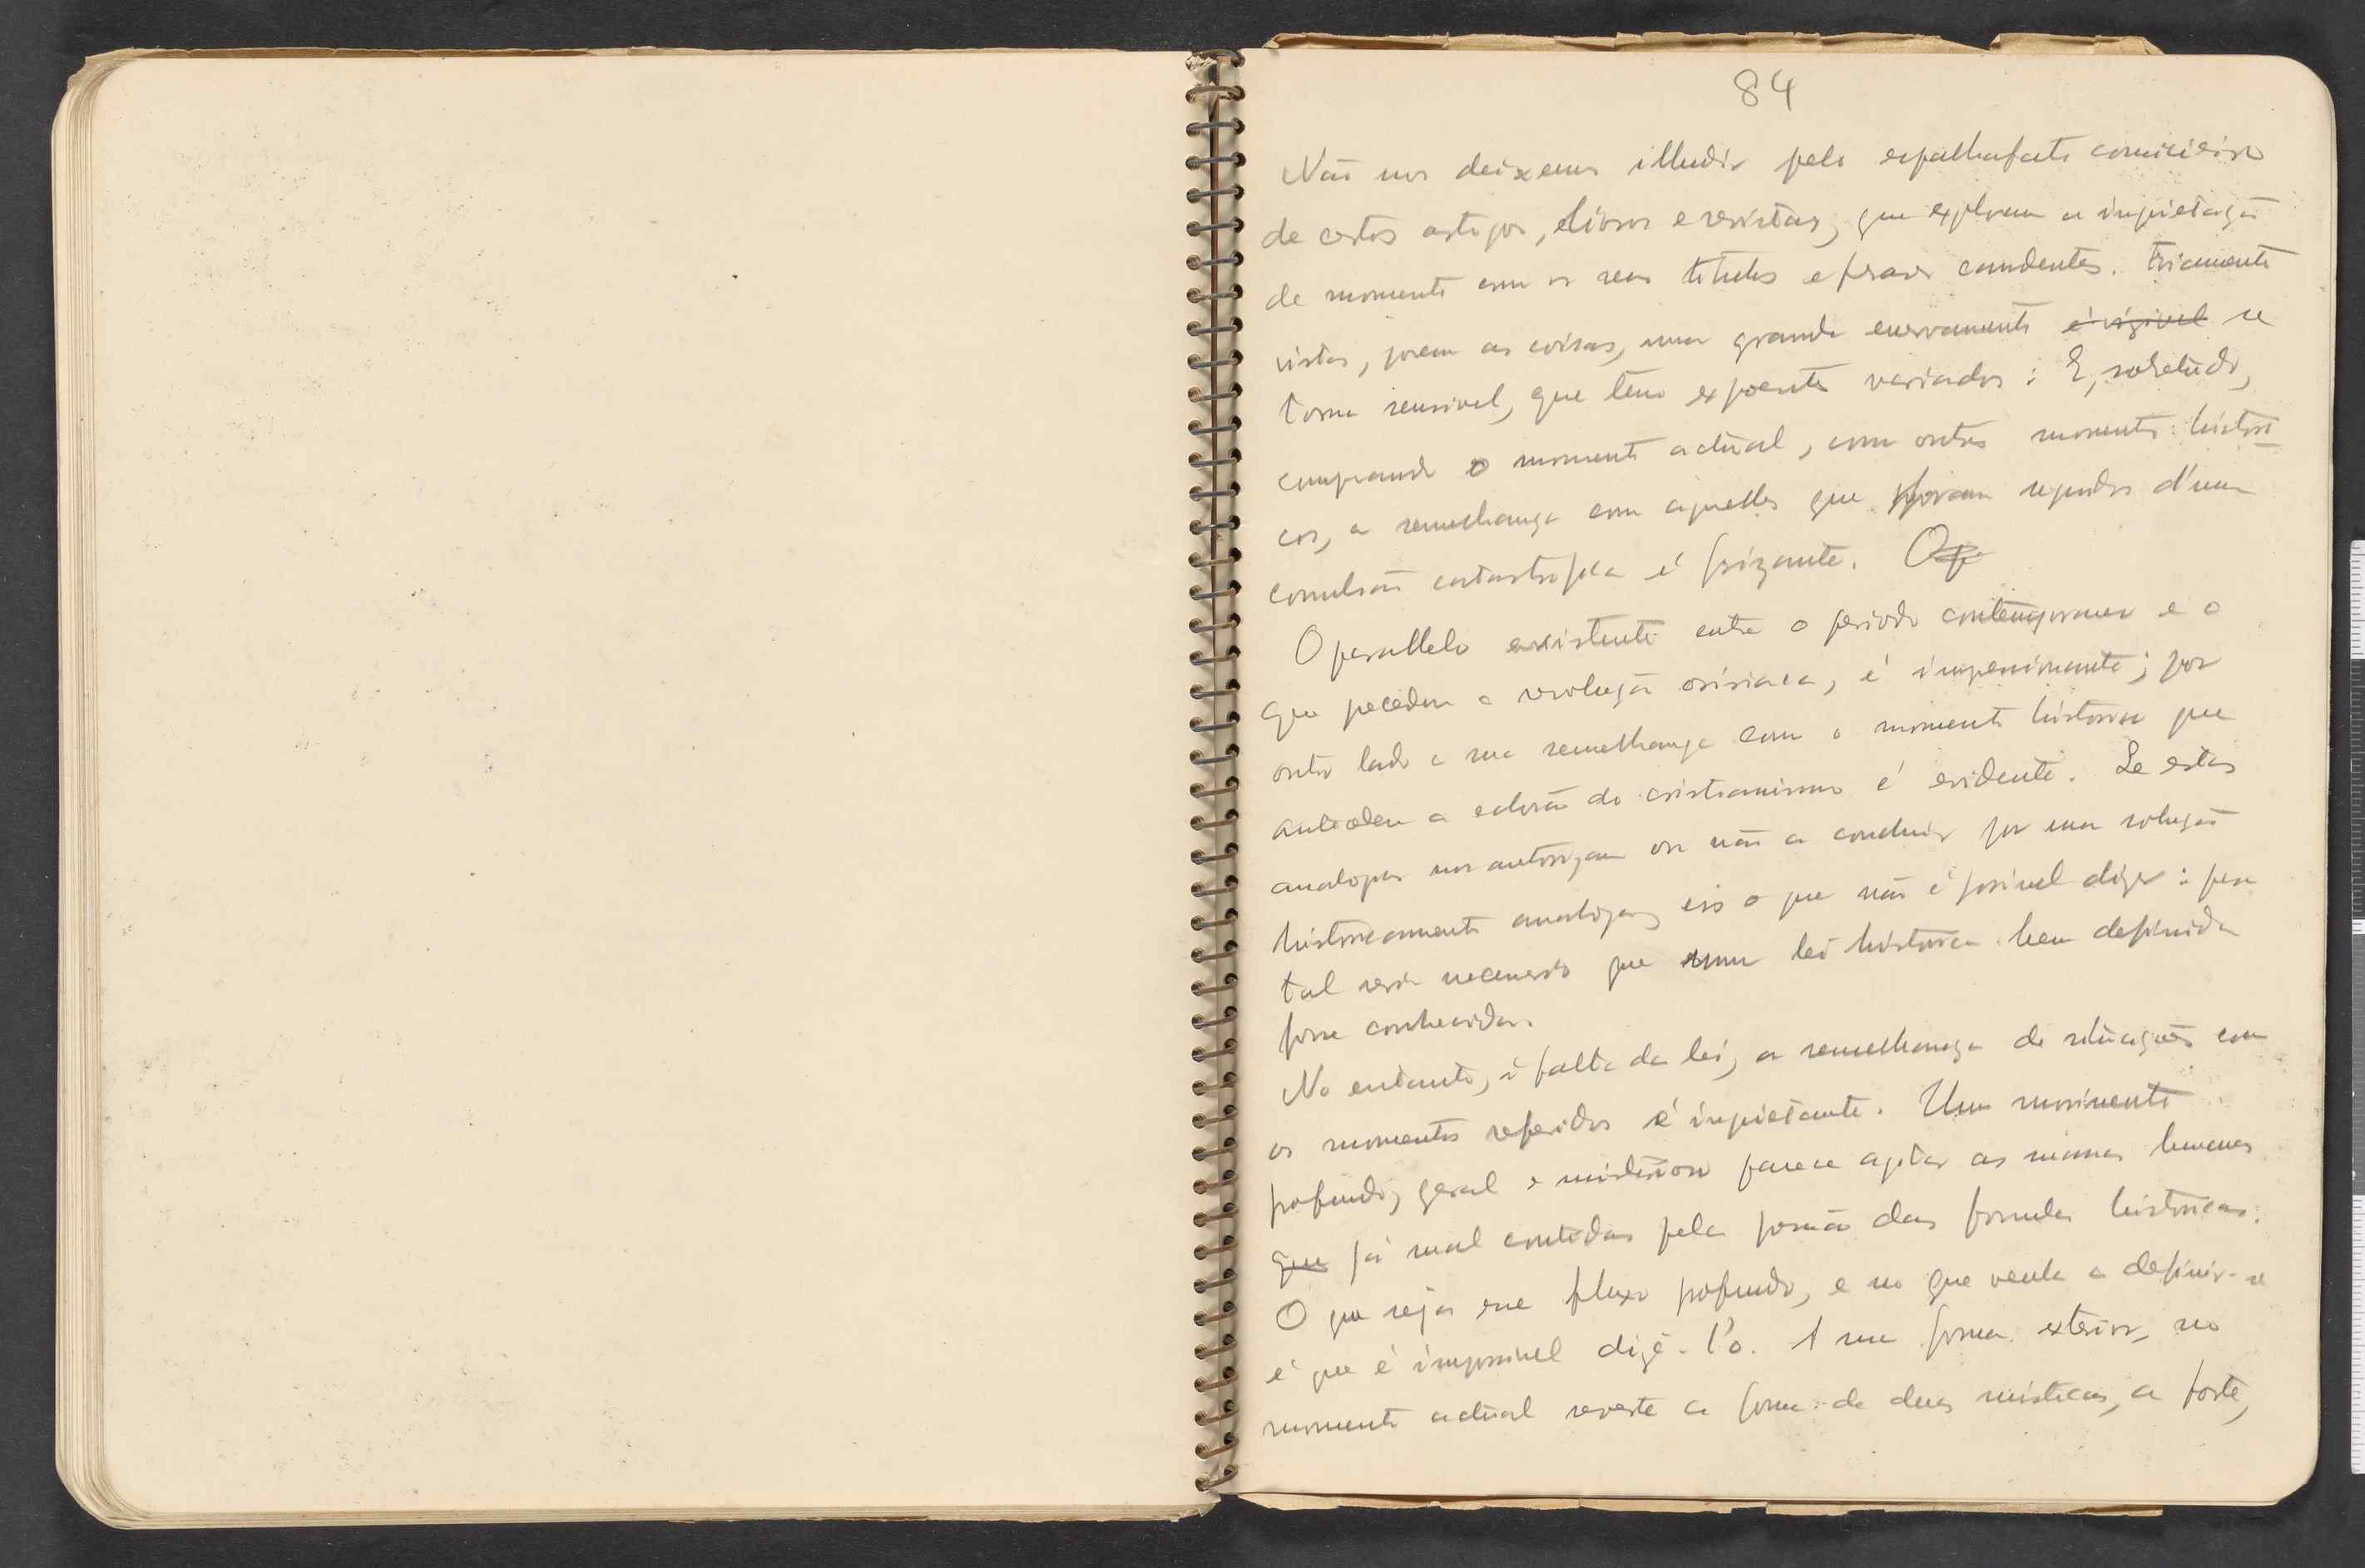 84
Não nos deixemos illudir pelo espalhafato comicieiro
de certos artigos, livros e revistas, que exploram a inquietação
de momento com os seus titulos e frases candentes. Friamente
vistas, porem as coisas, um grande enervamento é vizivel se
torna sensivel, que tem expoentes variados: E, sobretudo,
comparando o momento actual, com outros momentos histori-
cos, a semelhança com aquelles que foram seguidos d'uma
convulsão catastrofica é frizante. O
O parallelo existente entre o periodo contemporaneo e o
que precedeu a revolução osiriaca, é impressionante; por
outro lado a sua semelhança com o momento historico que
antecedeu a eclosão do cristianismo é evidente. Se estas
analogias nos autorizam ou não a concluir por uma solução
historicamente analoga, eis o que não é possivel dizer: para
tal seria necessario que uma lei historica bem definida
fosse conhecida.
No entanto, á falta da lei, a semelhança de situações com
os momentos referidos é inquietante. Um movimento
profundo, geral e misterioso parece agitar as massas humanas
que já mal contidas pela pressão das formulas historicas.
O que seja esse fluxo profundo, e no que venha a definir-se
é que é impossivel dizê-l'o. A sua forma exterior, no
momento actual reveste a forma de duas misticas, a forte,